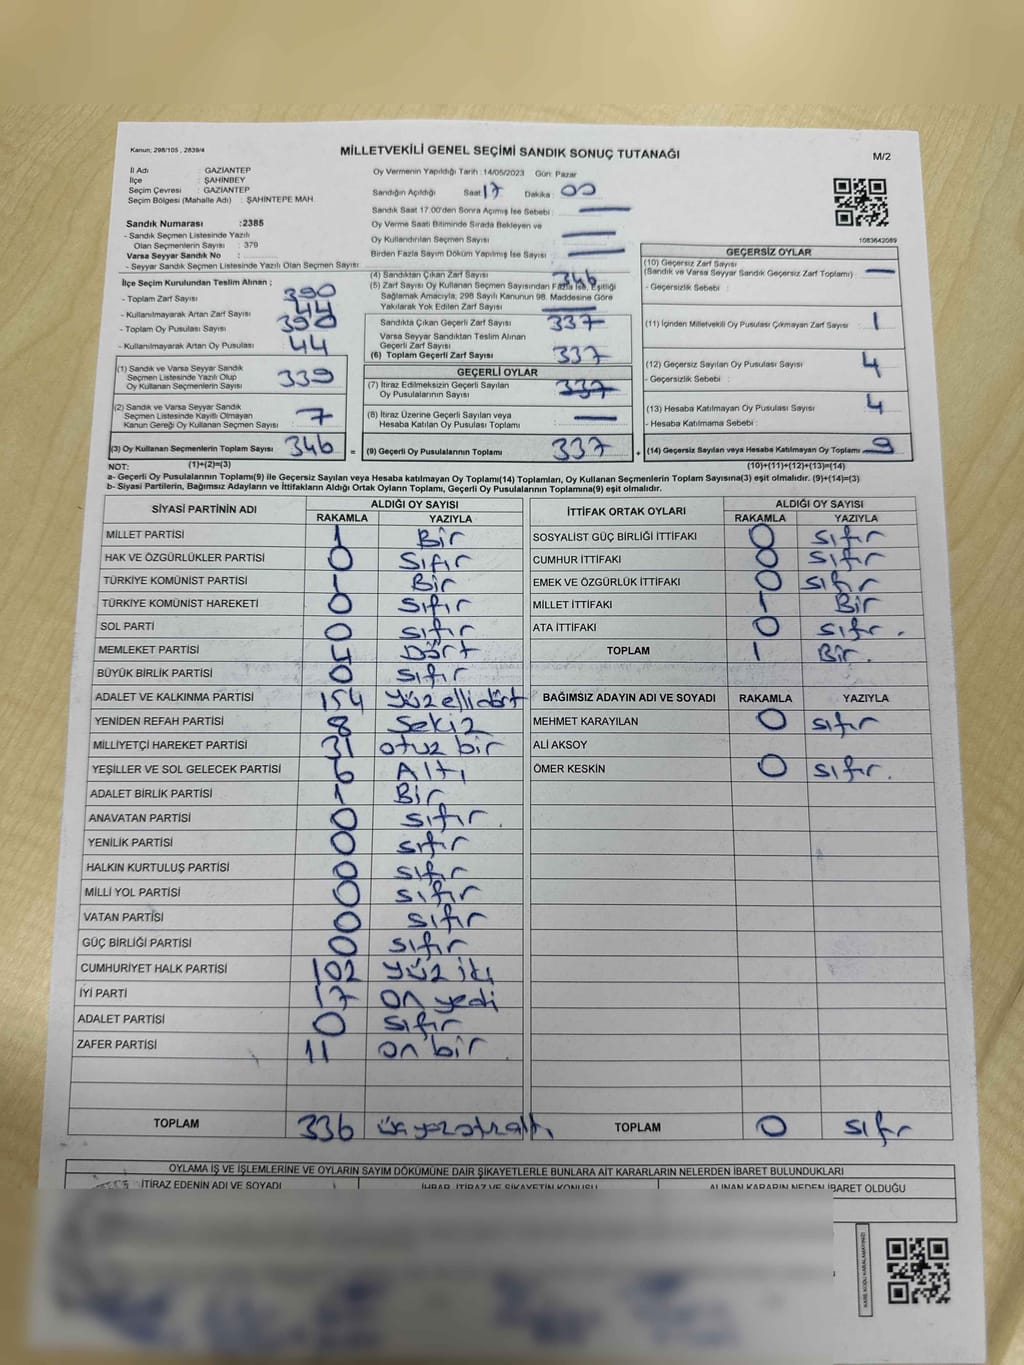 Kanun; 298/105 , 2839/4
MİLLETVEKİLİ GENEL SEÇİMİ SANDIK SONUÇ TUTANAĞI
M/2
İl Adı : GAZİANTEP
İlçe : ŞAHİNBEY
Seçim Çevresi : GAZİANTEP
Seçim Bölgesi (Mahalle Adı) : ŞAHİNTEPE MAH.
Oy Vermenin Yapıldığı Tarih : 14/05/2023 Gün: Pazar
Sandığın Açıldığı Saat 17 Dakika : 00
Sandık Saat 17:00'den Sonra Açımış İse Sebebi :
Oy Verme Saati Bitiminde Sırada Bekleyen ve
Oy Kullandırılan Seçmen Sayısı
Birden Fazla Sayım Döküm Yapılmış İse Sayısı :
1083642089
Sandık Numarası :2385
- Sandık Seçmen Listesinde Yazılı
Olan Seçmenlerin Sayısı : 379
Varsa Seyyar Sandık No :
- Seyyar Sandık Seçmen Listesinde Yazılı Olan Seçmen Sayısı
İlçe Seçim Kurulundan Teslim Alınan ;
- Toplam Zarf Sayısı 390
- Kullanılmayarak Artan Zarf Sayısı 44
- Toplam Oy Pusulası Sayısı 390
- Kullanılmayarak Artan Oy Pusulası 44
(1) Sandık ve Varsa Seyyar Sandık
Seçmen Listesinde Yazılı Olup
Oy Kullanan Seçmenlerin Sayısı 339
(2) Sandık ve Varsa Seyyar Sandık
Seçmen Listesinde Kayıtlı Olmayan
Kanun Gereği Oy Kullanan Seçmen Sayısı 7
(3) Oy Kullanan Seçmenlerin Toplam Sayısı 346
(1)+(2)=(3)
(4) Sandıktan Çıkan Zarf Sayısı 346
(5) Zarf Sayısı Oy Kullanan Seçmen Sayısından Fazla İse, Eşitliği
Sağlamak Amacıyla, 298 Sayılı Kanunun 98. Maddesine Göre
Yakılarak Yok Edilen Zarf Sayısı
Sandıkta Çıkan Geçerli Zarf Sayısı 337
Varsa Seyyar Sandıktan Teslim Alınan
Geçerli Zarf Sayısı
(6) Toplam Geçerli Zarf Sayısı 337
GEÇERLİ OYLAR
(7) İtiraz Edilmeksizin Geçerli Sayılan
Oy Pusulalarının Sayısı 337
(8) İtiraz Üzerine Geçerli Sayılan veya
Hesaba Katılan Oy Pusulası Toplamı
= (9) Geçerli Oy Pusulalarının Toplamı 337 +
GEÇERSİZ OYLAR
(10) Geçersiz Zarf Sayısı
(Sandık ve Varsa Seyyar Sandık Geçersiz Zarf Toplamı) :
- Geçersizlik Sebebi :
(11) İçinden Milletvekili Oy Pusulası Çıkmayan Zarf Sayısı : 1
(12) Geçersiz Sayılan Oy Pusulası Sayısı : 4
- Geçersizlik Sebebi :
(13) Hesaba Katılmayan Oy Pusulası Sayısı : 4
- Hesaba Katılmama Sebebi :
(14) Geçersiz Sayılan veya Hesaba Katılmayan Oy Toplamı 9
(10)+(11)+(12)+(13)=(14)
NOT:
a- Geçerli Oy Pusulalarının Toplamı(9) ile Geçersiz Sayılan veya Hesaba katılmayan Oy Toplamı(14) Toplamları, Oy Kullanan Seçmenlerin Toplam Sayısına(3) eşit olmalıdır. (9)+(14)=(3)
b- Siyasi Partilerin, Bağımsız Adayların ve İttifakların Aldığı Ortak Oyların Toplamı, Geçerli Oy Pusulalarının Toplamına(9) eşit olmalıdır.
SİYASİ PARTİNİN ADI ALDIĞI OY SAYISI
RAKAMLA YAZIYLA
MİLLET PARTİSİ 1 Bir
HAK VE ÖZGÜRLÜKLER PARTİSİ 0 Sıfır
TÜRKİYE KOMÜNİST PARTİSİ 1 Bir
TÜRKİYE KOMÜNİST HAREKETİ 0 sıfır
SOL PARTİ 0 sıfır
MEMLEKET PARTİSİ Dört
BÜYÜK BİRLİK PARTİSİ 0 sıfır
ADALET VE KALKINMA PARTİSİ 154 yüz elli dört
YENİDEN REFAH PARTİSİ 8 Sekiz
MİLLİYETÇİ HAREKET PARTİSİ 31 otuz bir
YEŞİLLER VE SOL GELECEK PARTİSİ 6 Altı
ADALET BİRLİK PARTİSİ 1 Bir
ANAVATAN PARTİSİ 0 sıfır.
YENİLİK PARTİSİ 0 sıfır
HALKIN KURTULUŞ PARTİSİ 0 sıfır
MİLLİ YOL PARTİSİ 0 sıfır
VATAN PARTİSİ 0 sıfır
GÜÇ BİRLİĞİ PARTİSİ 0 sıfır
CUMHURİYET HALK PARTİSİ 102 yüz iki
İYİ PARTİ 17 on yedi
ADALET PARTİSİ 0 sıfır
ZAFER PARTİSİ 11 on bir.
TOPLAM 336
İTTİFAK ORTAK OYLARI ALDIĞI OY SAYISI
RAKAMLA YAZIYLA
SOSYALİST GÜÇ BİRLİĞİ İTTİFAKI 0 sıfır
CUMHUR İTTİFAKI 0 sıfır
EMEK VE ÖZGÜRLÜK İTTİFAKI 0 sıfır
MİLLET İTTİFAKI 1 Bir
ATA İTTİFAKI 0 sıfır.
TOPLAM 1 Bir.
BAĞIMSIZ ADAYIN ADI VE SOYADI RAKAMLA YAZIYLA
MEHMET KARAYILAN 0 sıfır
ALİ AKSOY
ÖMER KESKİN 0 sıfır.
TOPLAM 0 sıfır
OYLAMA İŞ VE İŞLEMLERİNE VE OYLARIN SAYIM DÖKÜMÜNE DAİR ŞİKAYETLERLE BUNLARA AİT KARARLARIN NELERDEN İBARET BULUNDUKLARI
İTİRAZ EDENİN ADI VE SOYADI İHBAR, İTİRAZ VE ŞİKAYETİN KONUSU ALINAN KARARIN NEDEN İBARET OLDUĞU
KARE KODU KARALAMAYINIZ!